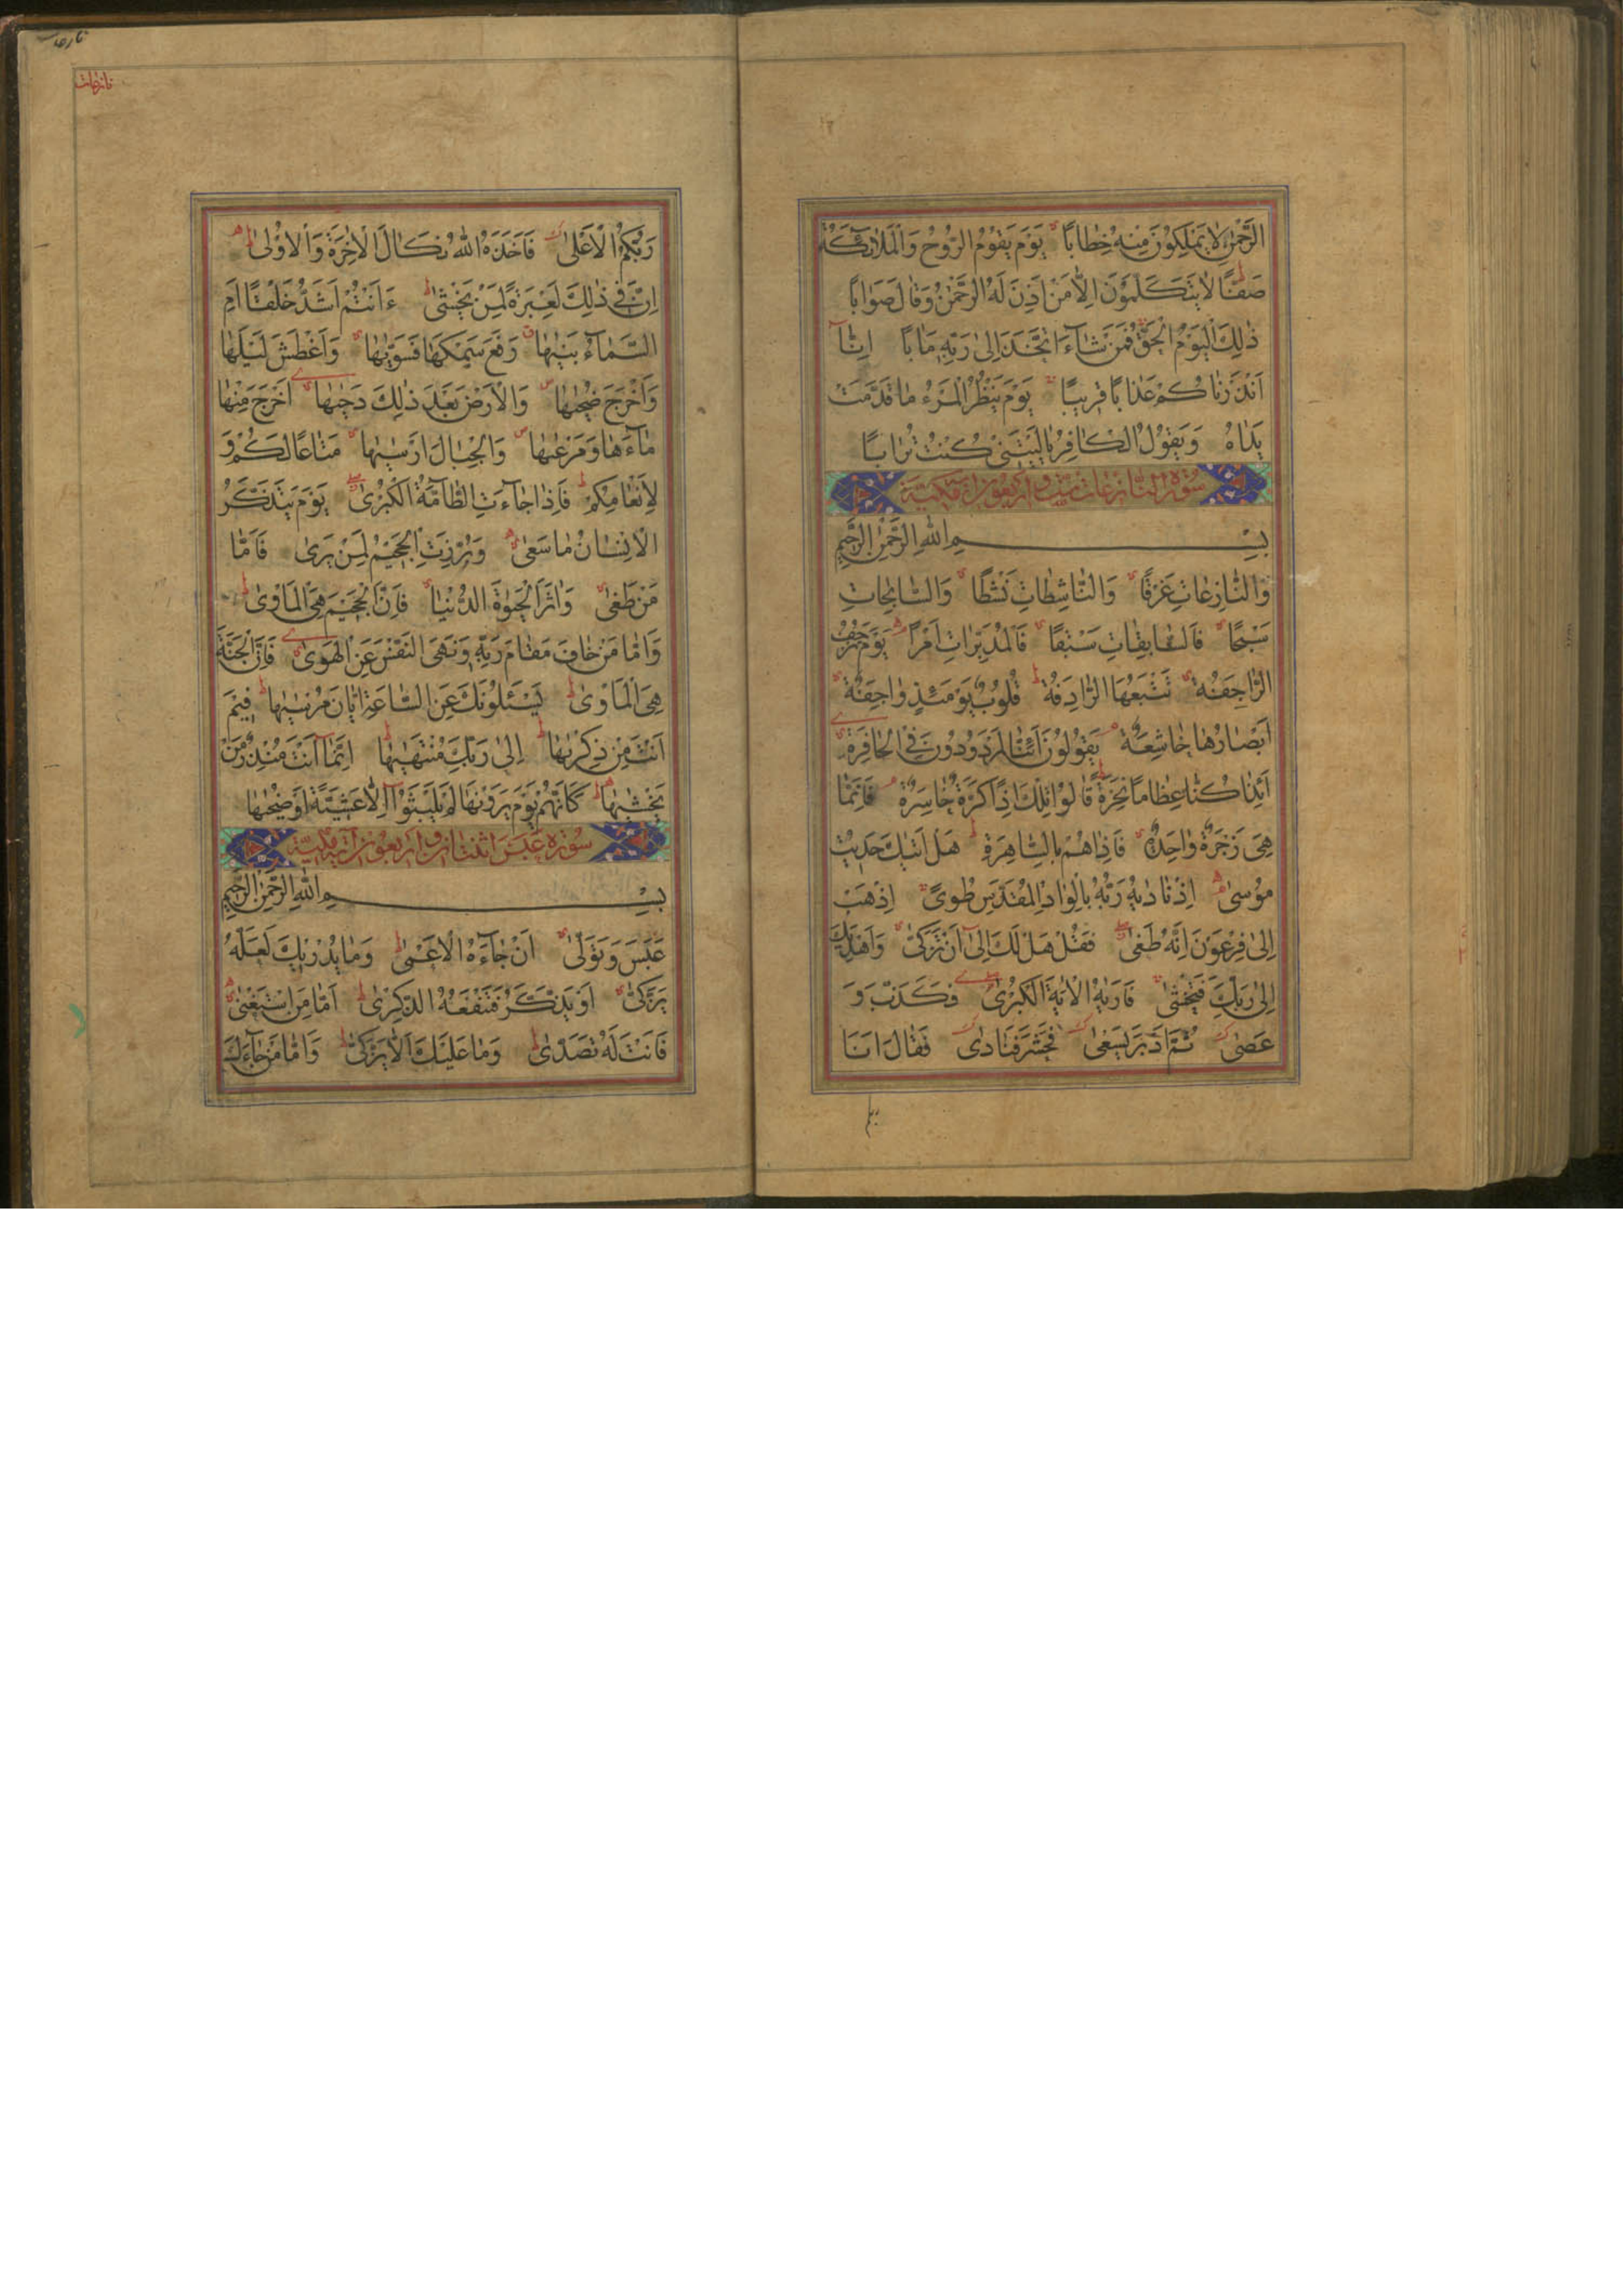 الرَّحْمٰنِ لَا يَمْلِكُونَ مِنْهُ خِطَابًا يَوْمَ يَقُومُ الرُّوحُ وَالْمَلَائِكَةُ
صَفًّا لَا يَتَكَلَّمُونَ اِلَّا مَنْ اَذِنَ لَهُ الرَّحْمٰنُ وَقَالَ صَوَابًا
ذٰلِكَ الْيَوْمُ الْحَقُّ فَمَنْ شَاءَ اتَّخَذَ اِلٰى رَبِّهٖ مَاٰبًا اِنَّآ
اَنْذَرْنَاكُمْ عَذَابًا قَرِيبًا يَوْمَ يَنْظُرُ الْمَرْءُ مَا قَدَّمَتْ
يَدَاهُ وَيَقُولُ الْكَافِرُ يَا لَيْتَنِي كُنْتُ تُرَابًا
سُورَةُ النَّازِعَات سِتّ وَاَرْبَعُونَ اٰيَة مَكِّيَّة
بِسْمِ اللّٰهِ الرَّحْمٰنِ الرَّحِيمِ
وَالنَّازِعَاتِ غَرْقًا وَالنَّاشِطَاتِ نَشْطًا وَالسَّابِحَاتِ
سَبْحًا فَالسَّابِقَاتِ سَبْقًا فَالْمُدَبِّرَاتِ اَمْرًا يَوْمَ تَرْجُفُ
الرَّاجِفَةُ تَتْبَعُهَا الرَّادِفَةُ قُلُوبٌ يَوْمَئِذٍ وَاجِفَةٌ
اَبْصَارُهَا خَاشِعَةٌ يَقُولُونَ اَئِنَّا لَمَرْدُودُونَ فِي الْحَافِرَةِ
اَئِذَا كُنَّا عِظَامًا نَخِرَةً قَالُوا تِلْكَ اِذًا كَرَّةٌ خَاسِرَةٌ فَاِنَّمَا
هِيَ زَجْرَةٌ وَاحِدَةٌ فَاِذَا هُمْ بِالسَّاهِرَةِ هَلْ اَتٰيكَ حَدِيثُ
مُوسٰى اِذْ نَادٰيهُ رَبُّهُ بِالْوَادِ الْمُقَدَّسِ طُوًى اِذْهَبْ
اِلٰى فِرْعَوْنَ اِنَّهُ طَغٰى فَقُلْ هَلْ لَكَ اِلٰٓى اَنْ تَزَكّٰى وَاَهْدِيَكَ
اِلٰى رَبِّكَ فَتَخْشٰى فَاَرٰيهُ الْاٰيَةَ الْكُبْرٰى فَكَذَّبَ وَ
عَصٰى ثُمَّ اَدْبَرَ يَسْعٰى فَحَشَرَ فَنَادٰى فَقَالَ اَنَا
ربكم
نازعات
رَبُّكُمُ الْاَعْلٰى فَاَخَذَهُ اللّٰهُ نَكَالَ الْاٰخِرَةِ وَالْاُوْلٰى
اِنَّ فِي ذٰلِكَ لَعِبْرَةً لِمَنْ يَخْشٰى ءَاَنْتُمْ اَشَدُّ خَلْقًا اَمِ
السَّمَآءُ بَنٰيهَا رَفَعَ سَمْكَهَا فَسَوّٰيهَا وَاَغْطَشَ لَيْلَهَا
وَاَخْرَجَ ضُحٰيهَا وَالْاَرْضَ بَعْدَ ذٰلِكَ دَحٰيهَا اَخْرَجَ مِنْهَا
مَآءَهَا وَمَرْعٰيهَا وَالْجِبَالَ اَرْسٰيهَا مَتَاعًا لَكُمْ وَ
لِاَنْعَامِكُمْ فَاِذَا جَآءَتِ الطَّآمَّةُ الْكُبْرٰى يَوْمَ يَتَذَكَّرُ
الْاِنْسَانُ مَا سَعٰى وَبُرِّزَتِ الْجَحِيمُ لِمَنْ يَرٰى فَاَمَّا
مَنْ طَغٰى وَاٰثَرَ الْحَيٰوةَ الدُّنْيَا فَاِنَّ الْجَحِيمَ هِيَ الْمَاْوٰى
وَاَمَّا مَنْ خَافَ مَقَامَ رَبِّهٖ وَنَهَى النَّفْسَ عَنِ الْهَوٰى فَاِنَّ الْجَنَّةَ
هِيَ الْمَاْوٰى يَسْئَلُونَكَ عَنِ السَّاعَةِ اَيَّانَ مُرْسٰيهَا فِيمَ
اَنْتَ مِنْ ذِكْرٰيهَا اِلٰى رَبِّكَ مُنْتَهٰيهَا اِنَّمَآ اَنْتَ مُنْذِرُ مَنْ
يَخْشٰيهَا كَاَنَّهُمْ يَوْمَ يَرَوْنَهَا لَمْ يَلْبَثُوٓا اِلَّا عَشِيَّةً اَوْ ضُحٰيهَا
سُورَة عَبَسَ اثْنَتَانِ وَاَرْبَعُونَ اٰيَة مَكِّيَّة
بِسْمِ اللّٰهِ الرَّحْمٰنِ الرَّحِيمِ
عَبَسَ وَتَوَلّٰى اَنْ جَآءَهُ الْاَعْمٰى وَمَا يُدْرِيكَ لَعَلَّهُ
يَزَّكّٰى اَوْ يَذَّكَّرُ فَتَنْفَعَهُ الذِّكْرٰى اَمَّا مَنِ اسْتَغْنٰى
فَاَنْتَ لَهُ تَصَدّٰى وَمَا عَلَيْكَ اَلَّا يَزَّكّٰى وَاَمَّا مَنْ جَآءَكَ